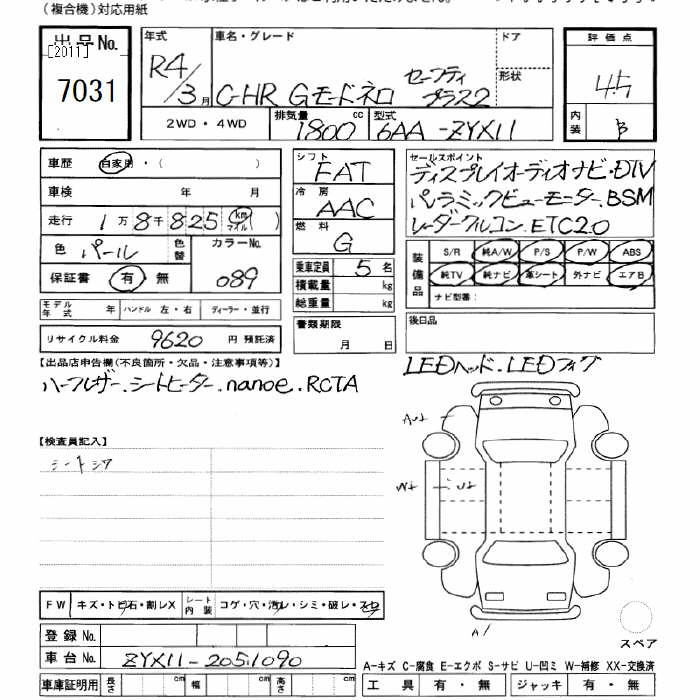 (複合機)対応用紙
出品No.
[2011]
7031
年式
R4/3月
車名・グレード
C-HR Gモードネロ セーフティプラス2
ドア
形状
評価点
4.5
内装
B
2WD・4WD
排気量
1800 cc
型式
6AA-ZYX11
車歴 自家用・( )
車検 年 月
走行 1万8千825(km マイル)
色 パール
色替
カラーNo.
089
保証書 有 無
モデル年式 年 ハンドル 左・右 ディーラー・並行
リサイクル料金 9620 円 預託済
シフト
FAT
冷房
AAC
燃料
G
乗車定員 5 名
積載量 kg
総重量 kg
書類期限
月 日
セールスポイント
ディスプレイオーディオナビ・DTV
パノラミックビューモニター、BSM
レーダークルコン、ETC2.0
装備品
S/R 純A/W P/S P/W ABS
純TV 純ナビ 革シート 外ナビ エアB
ナビ型番:
後日品
【出品店申告欄(不良箇所・欠品・注意事項等)】
LEDヘッド、LEDフォグ
ハーフレザー、シートヒーター、nanoe、RCTA
【検査員記入】
シートシワ
A
FW キズ・トビ石・割レX
シート内装 コゲ・穴・汚レ・シミ・破レ・スレ
登録No.
車台No. ZYX11-2051090
スペア
A-キズ C-腐食 E-エクボ S-サビ U-凹ミ W-補修 XX-交換済
車庫証明用 長さ cm 幅 cm 高さ cm
工具 有・無 ジャッキ 有・無